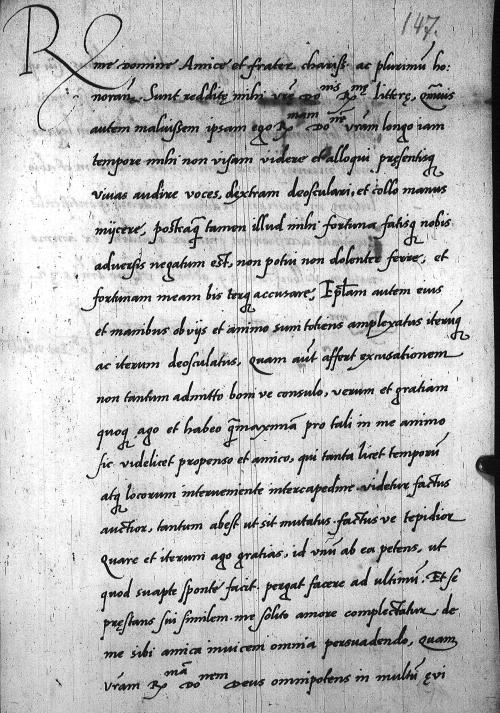 147.
R
me domine Amice et frater chariss: ac plurimū ho:
norañ. Sunt redditę mihi vrę Do^nis R^mę litterę, Qm̄vis
autem maluissem ipsam ego R^mam Do^nē vram longo iam
tempore mihi non visam videre et alloqui pręsentisq
vivas audire voces, dextram deosculari, et collo manus
inÿcere, posteaq̃ tamen illud mihi fortuna fatisq nobis
adversis negatum est, non potui non dolenter ferre, et
fortunam meam bis terq accusare, Ep̄lam autem eius
et manibus obvijs et animo sum totiens amplexatus iterūq
ac iterum deosculatus, Quam aūt affert excusationem
non tantum admitto boni ve consulo, verum et gratiam
quoq ago et habeo q̃maximā pro tali in me animo
sic videlicet propenso et amico, qui tanta licet temporū
atq locorum interveniente intercapedine videtur factus
auctior, tantum abest ut sit mutatus. factus ve tepidior
Quare et iterum ago gratias, id unū ab ea petens, ut
quod suapte sponte facit. pergat facere ad ultimū. Et se
prestans sui similem me solito amore complectatur. de
me sibi amica invicem omnia persuadendo, Quam
vram R^mā Do^nem Deus omnipotens in multū ęvi